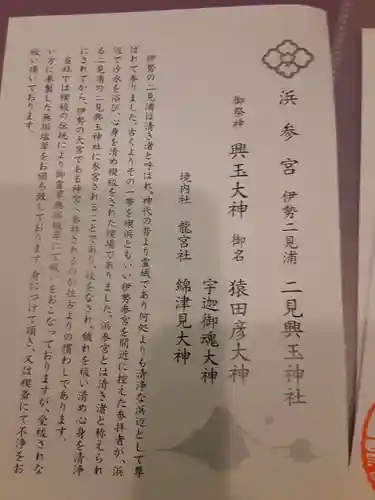 浜参宮 伊勢二見浦 二見興玉神社
御祭神 興玉大神 御名 猿田彦大神
宇迦御魂大神
境内社 龍宮社 綿津見大神
伊勢の二見浦は清き渚と呼ばれ、神代の昔より霊域であり何処よりも清浄な浜辺として尊
ばれて参りました。古くよりその一帯を禊浜ともいい伊勢参宮を間近に控えた参拝者が、浜
辺で汐水を浴び、心身を清め禊祓をされた禊場でありました。浜参宮とは清き渚と称えられ
る二見浦の二見興玉神社に参宮されることであり、禊をなされ、穢れを祓い清め心身を清浄
にされてから、伊勢の大宮である神宮へ参拝されるのが往古よりの慣わしであります。
当社では禊祓の伝統により御霊草無垢塩草にて祓いをおこなっておりますが、受祓されな
い方に奉製した無垢塩草をお頒ち致しております。身につけて頂き、又は禊の際にて不浄をお
祓い頂いております。